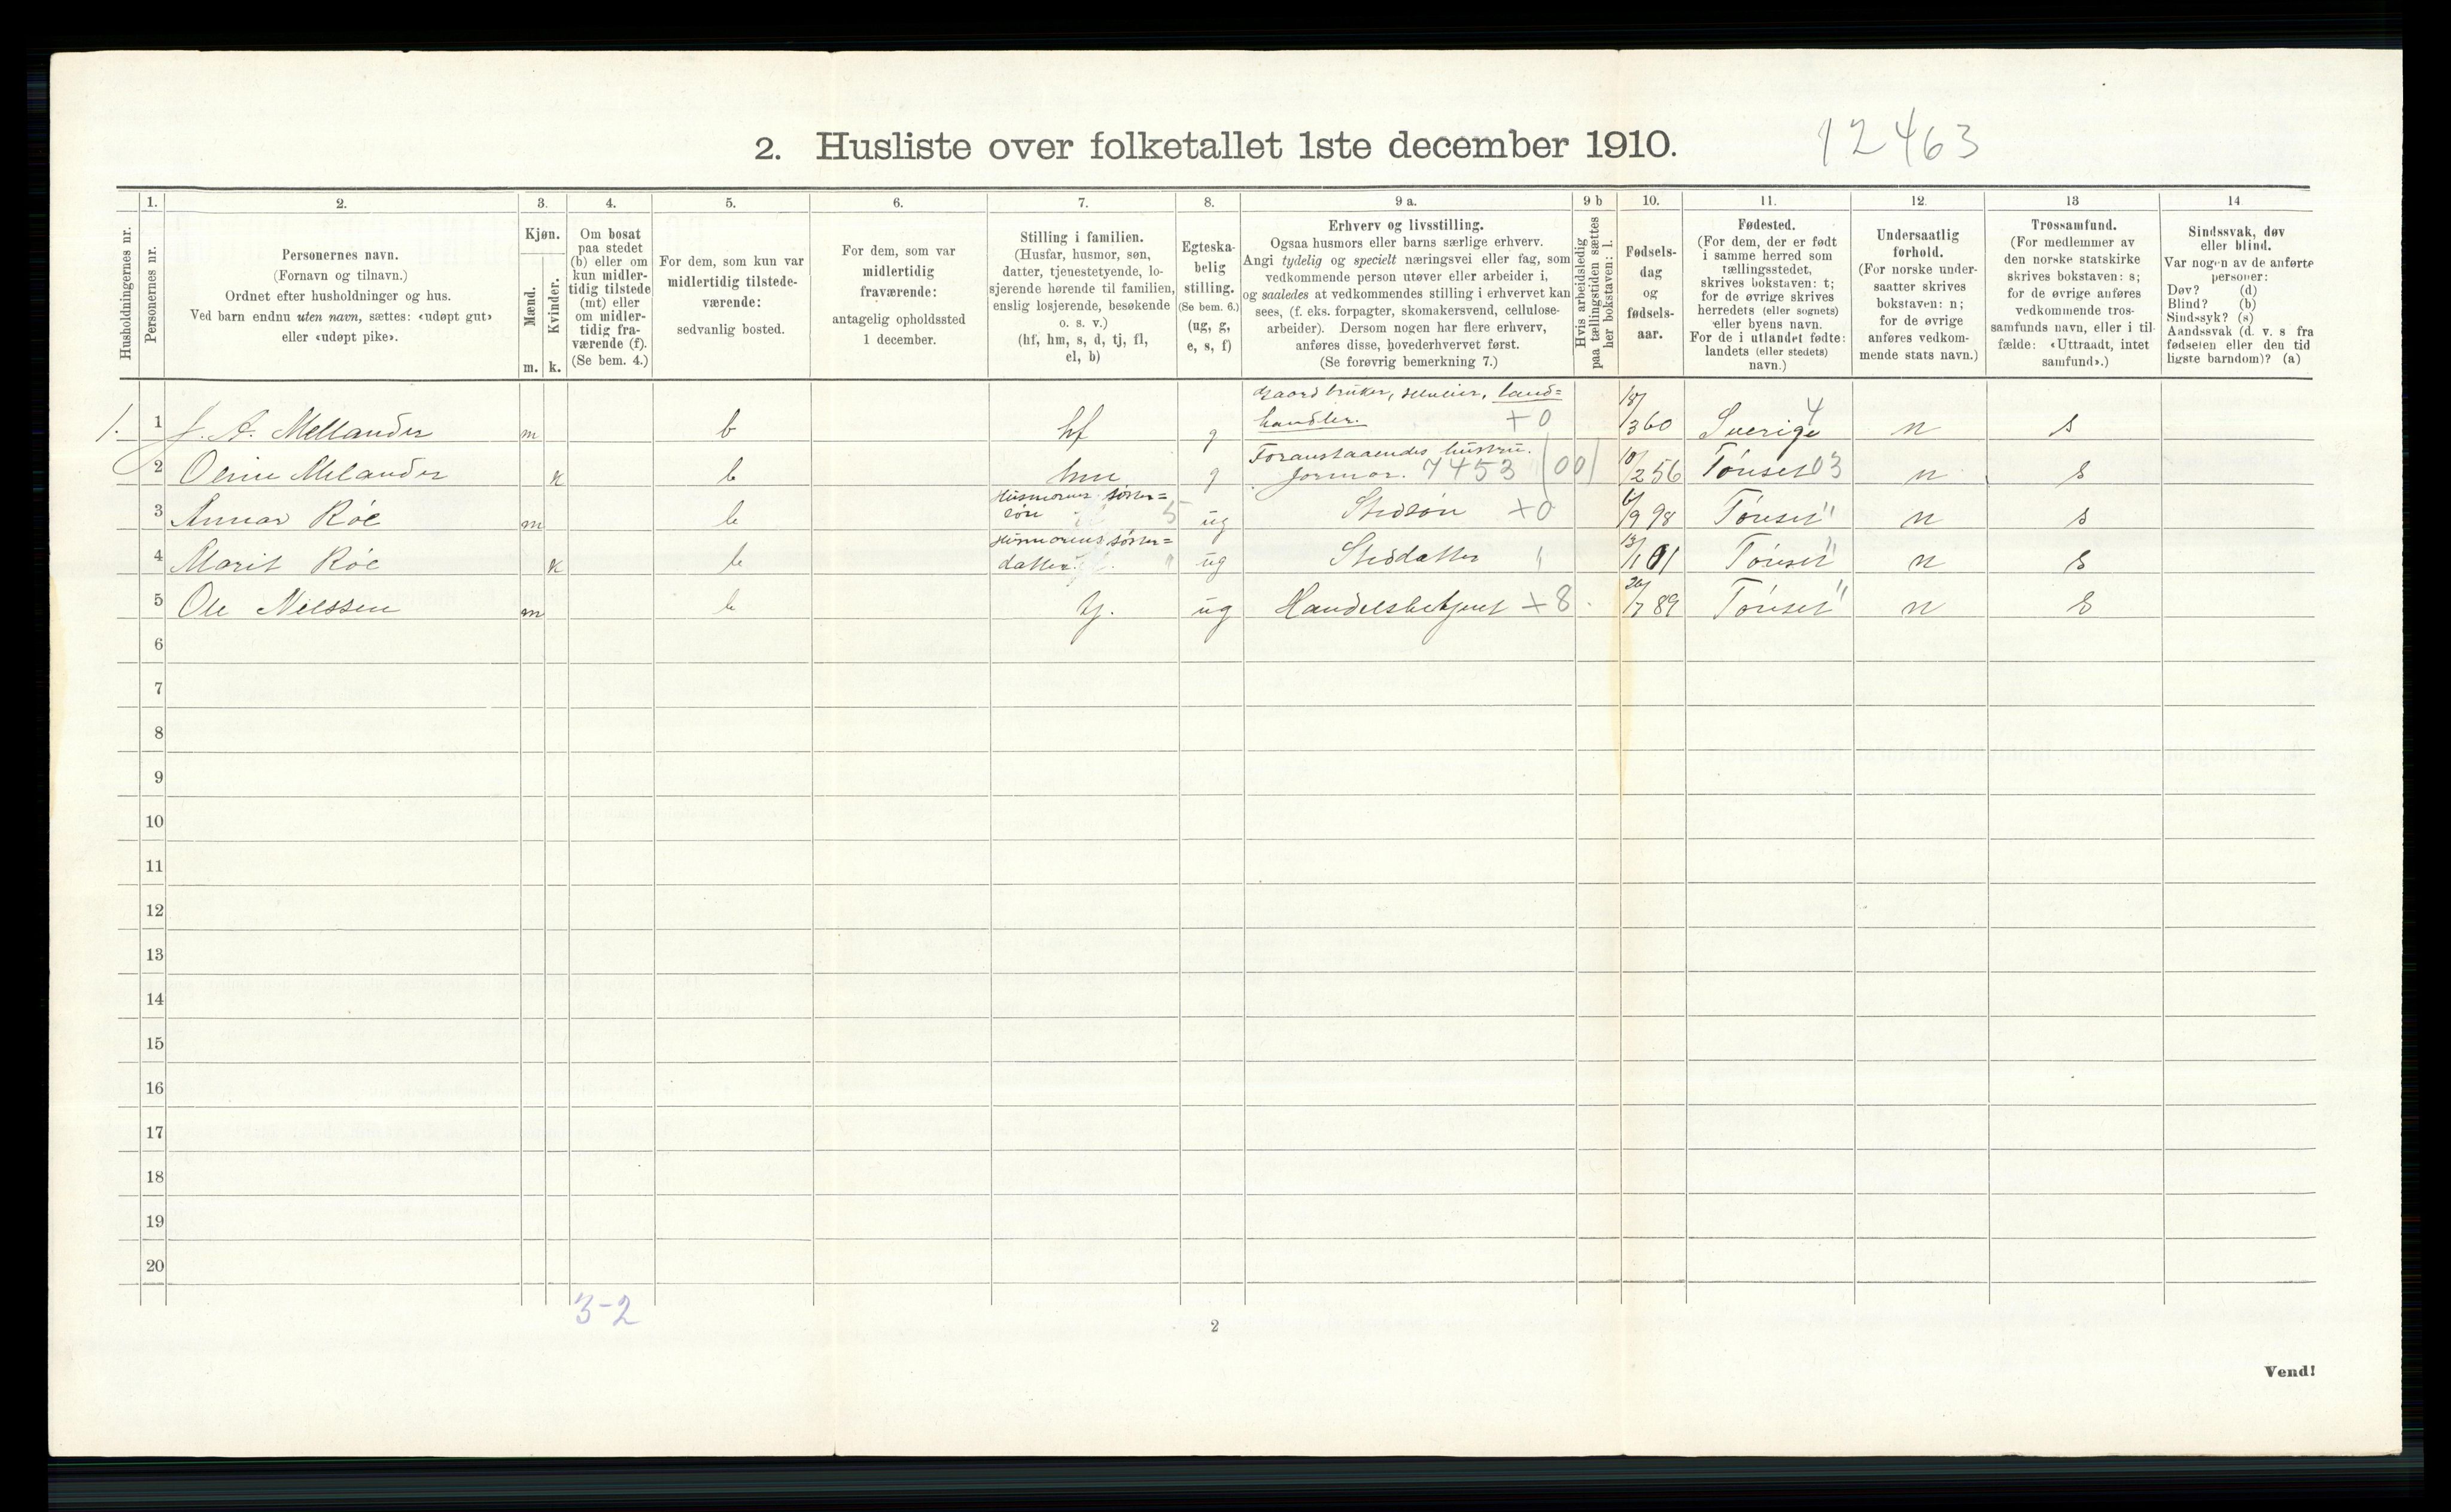 12463
2. Husliste over folketallet 1ste december 1910.
1. 2. 3. 4. 5. 6. 7. 8. 9 a. 9 b 10. 11. 12. 13 14
Husholdningernes nr.
Personernes nr.
Personernes navn.
(Fornavn og tilnavn.)
Ordnet efter husholdninger og hus.
Ved barn endnu uten navn, sættes: «udøpt gut»
eller «udøpt pike».
Kjøn.
Mænd.
Kvinder.
m. k.
Om bosat
paa stedet
(b) eller om
kun midler-
tidig tilstede
(mt) eller
om midler-
tidig fra-
værende (f).
(Se bem. 4.)
For dem, som kun var
midlertidig tilstede-
værende:
sedvanlig bosted.
For dem, som var
midlertidig
fraværende:
antagelig opholdssted
1 december.
Stilling i familien.
(Husfar, husmor, søn,
datter, tjenestetyende, lo-
sjerende hørende til familien,
enslig losjerende, besøkende
o. s. v.)
(hf, hm, s, d, tj, fl,
el, b)
Egteska-
belig
stilling.
(Se bem. 6.)
(ug, g,
e, s, f)
Erhverv og livsstilling.
Ogsaa husmors eller barns særlige erhverv.
Angi tydelig og specielt næringsvei eller fag, som
vedkommende person utøver eller arbeider i,
og saaledes at vedkommendes stilling i erhvervet kan
sees, (f. eks. forpagter, skomakersvend, cellulose-
arbeider). Dersom nogen har flere erhverv,
anføres disse, hovederhvervet først.
(Se forøvrig bemerkning 7.)
Hvis arbeidsledig
paa tællingstiden sættes
her bokstaven: l.
Fødsels-
dag
og
fødsels-
aar.
Fødested.
(For dem, der er født
i samme herred som
tællingsstedet,
skrives bokstaven: t;
for de øvrige skrives
herredets (eller sognets)
eller byens navn.
For de i utlandet fødte:
landets (eller stedets)
navn.)
Undersaatlig
forhold.
(For norske under-
saatter skrives
bokstaven: n;
for de øvrige
anføres vedkom-
mende stats navn.)
Trossamfund.
(For medlemmer av
den norske statskirke
skrives bokstaven: s;
for de øvrige anføres
vedkommende tros-
samfunds navn, eller i til-
fælde: «Uttraadt, intet
samfund».)
Sindssvak, døv
eller blind.
Var nogen av de anførte
personer:
Døv? (d)
Blind? (b)
Sindssyk? (s)
Aandssvak (d. v. s fra
fødselen eller den tid
ligste barndom)? (a)
1. 1 J. A. Mellander m b hf g Gaardbruker, selveier, land=
handler. +0 18/3 60 Sverige 4 n s
2 Oline Melander k b hm g Foranstaaendes hustru.
Jormor. 7453 (00) 10/2 56 Tønset 03 n s
3 Annar Røe m b Husmorens søster=
søn 5 ug Stedsøn +0 6/9 98 Tønset " n s
4 Marit Røe k b Husmorens søster=
datter " ug Steddatter " 13/1 01 Tønset " n s
5 Ole Nilssen m b tj. ug Handelsbetjent +8 26/7 89 Tønset " n s
6
7
8
9
10
11
12
13
14
15
16
17
18
19
20
3-2
2
Vend!